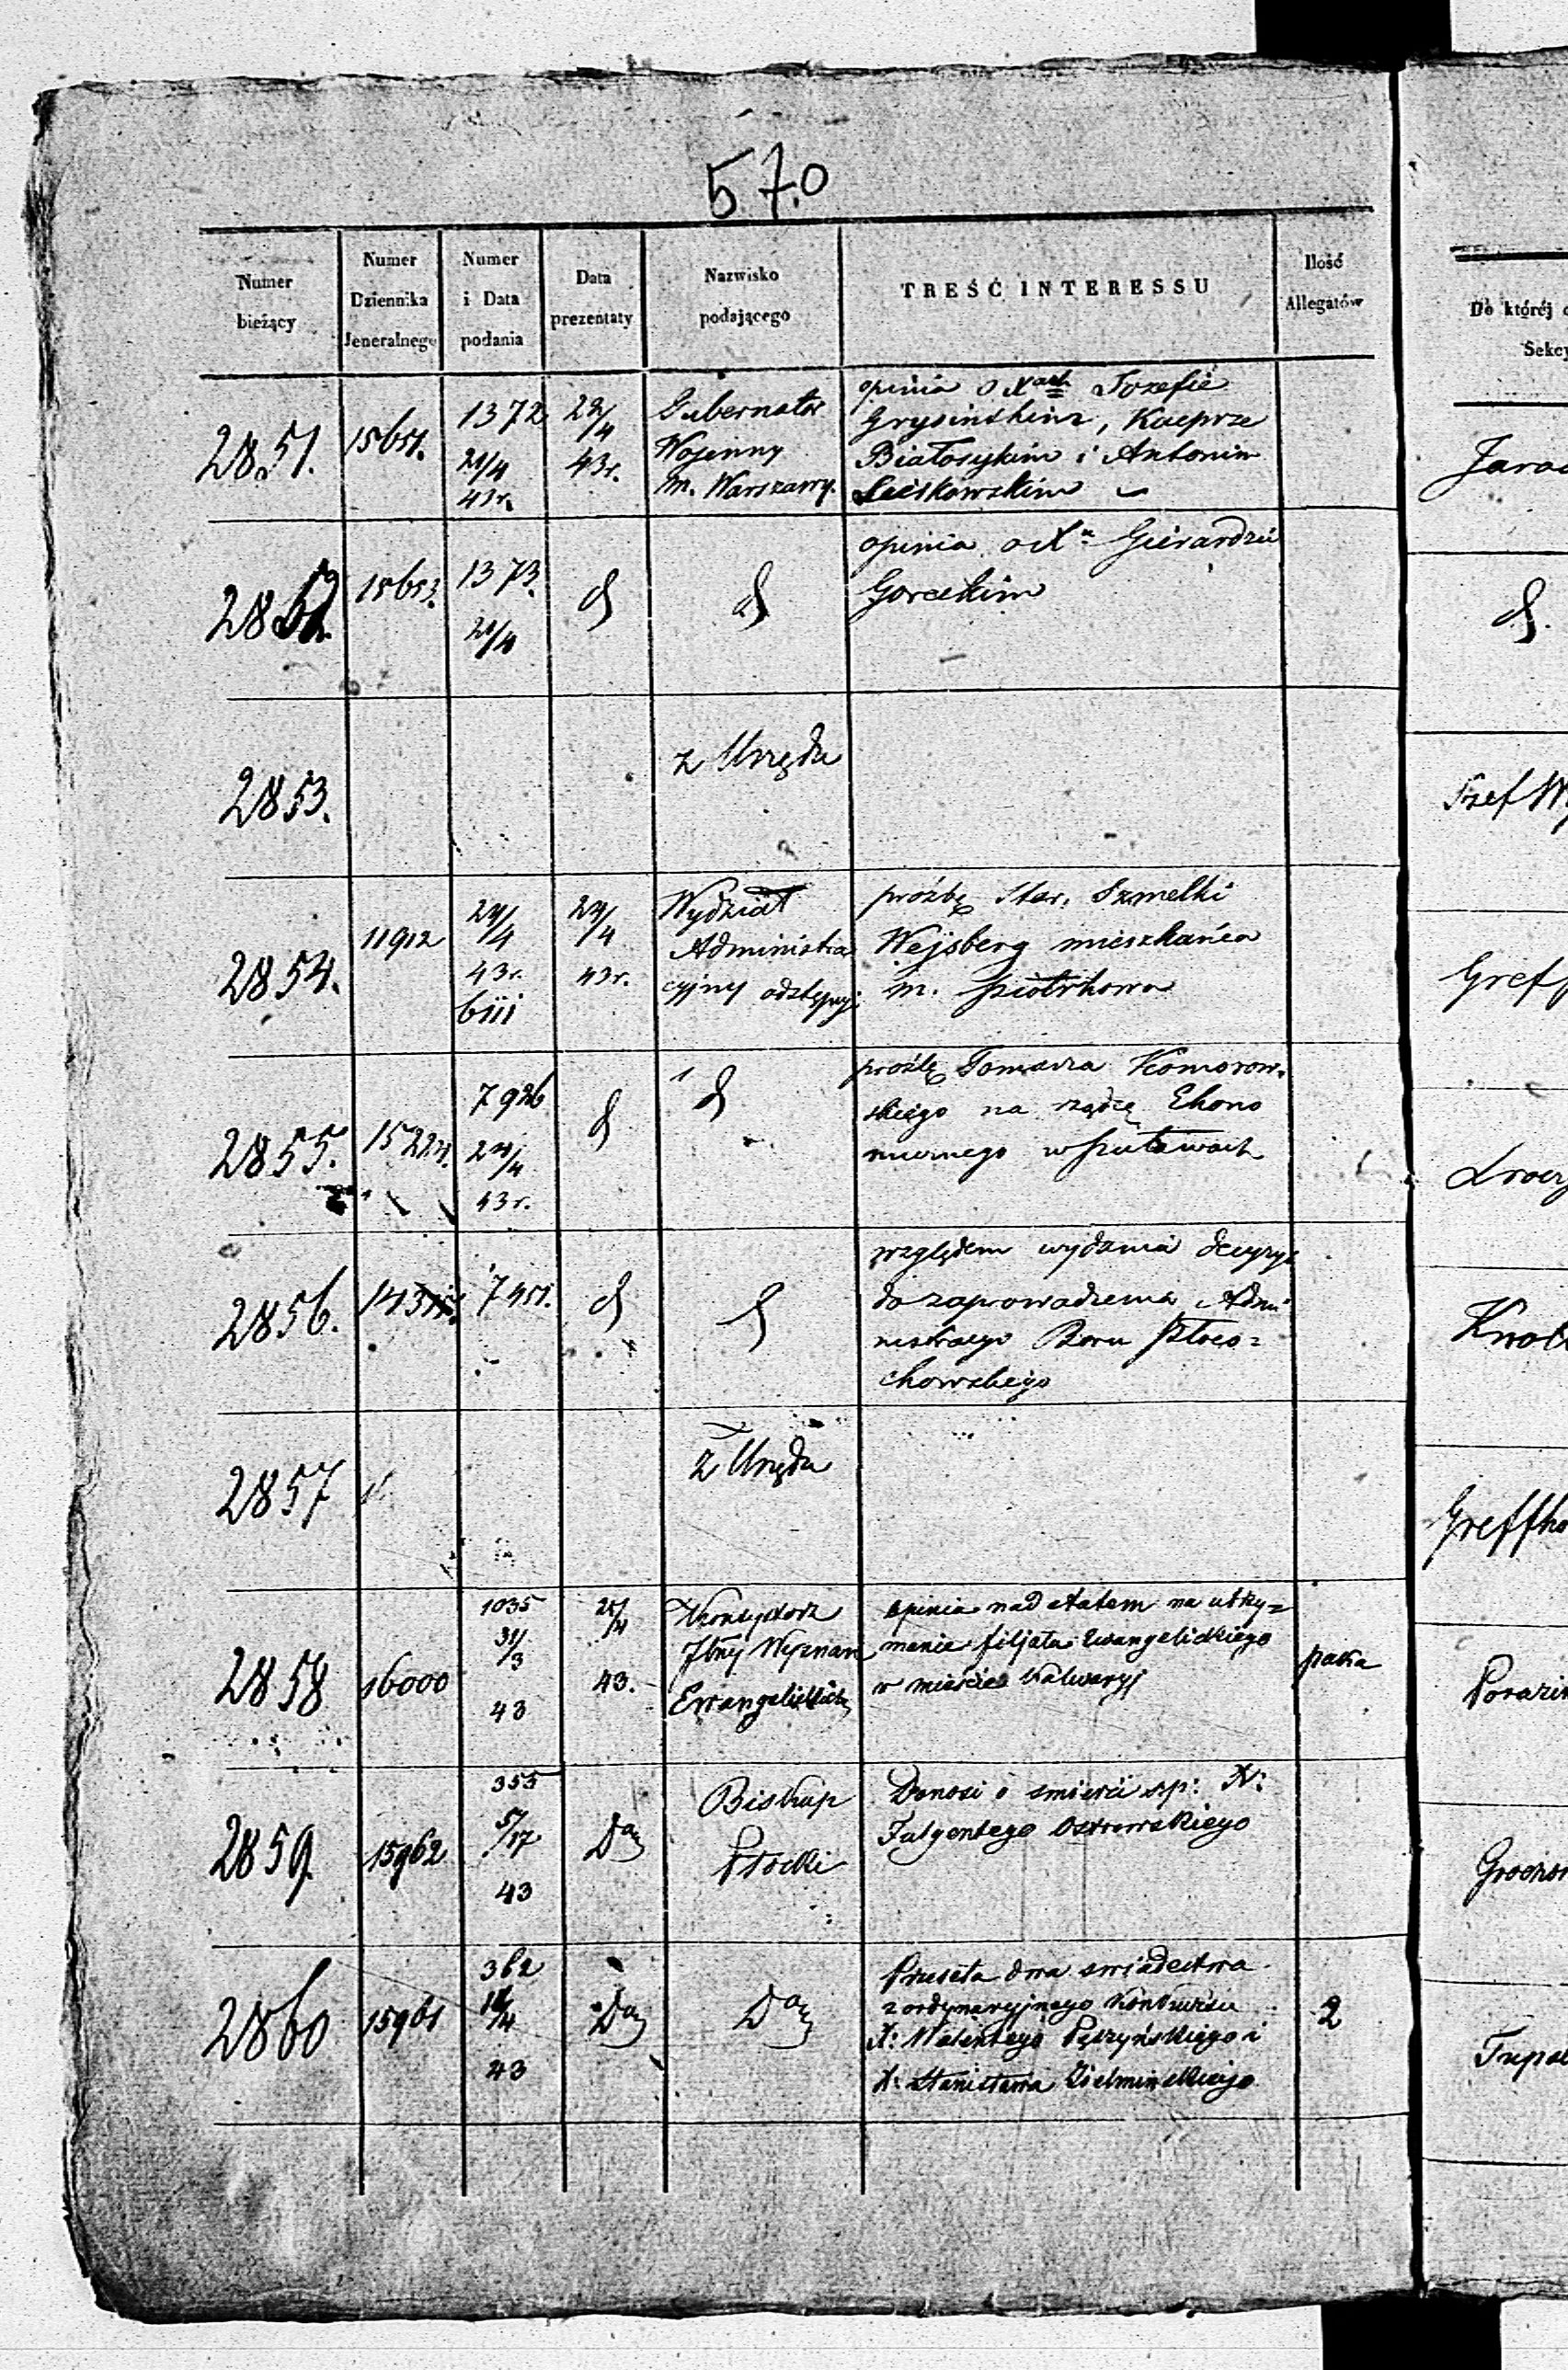 570
Numer bieżący
Numer Dziennika Jeneralnego
Numer i Data podania
Data prezentaty
Nazwisko podającego
TREŚĆ INTERESSU
Ilość Allegatów
Do której
Sekcy
2851. 15651. 1372 21/4 43r. 22/4 43r.
Gubernator
Wojenny
m. Warszawy.
opinia o Xach Jozefie
Grysinskim, Kacprze
Białosykim i Antonim
Leskowskim
2852. 15653. 1373. 21/4 d d
opinia o Xu Gierardzie
Goreckim
d.
2853.
z Urzędu
Szef Wy
2854. 11912 24/4 43r. 6111 24/4 43r.
Wydział
Administra
cyjny odstępuje
prożbę Star. Szmelki
Wejsberg mieszkańca
m. Piotrkowa
2855. 15224. 7926 24/4 43r. d d
prożbę Tomasza Komorow.
skiego na rządcę Ekono
micznego w Puławach
2856. 7451. d d
względem wydania decyzyi
do zaprowadzenia Admi
nistracyi Boru
chowskiego
2857
z Urzędu
2858 16000 1035 31/3 43 43.
Konsystorz
Jlny Wyznan
Ewangelickich
opinia nad etatem na utrzy=
manie filjału Ewangelickiego
w mieście Kalwaryj
paka
2859. 15962 355 5/17 43 Do
Biskup
Płocki
Donosi o smierci sp: X:
Fulgentego Ostrowskiego
2860 15961 362 43 Do Do
Przeseła dwa swiadectwa
z ordynaryjnego Konkursu
X: Walentego Pęszyńskiego i
X: Stanisława Zielminskiego
2